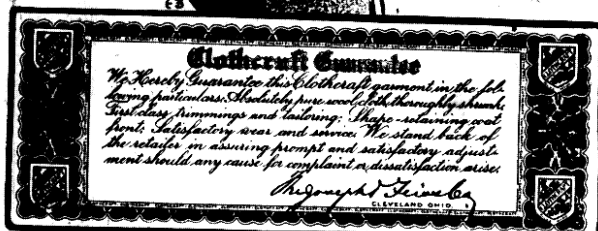 Clothcraft Guarantee
We Hereby Guarantee this Clothcraft garment in the fol-
lowing particulars: Absolutely pure wool cloth, thoroughly shrunk;
First class trimmings and tailoring; Shape-retaining coat
front; Satisfactory wear and service. We stand back of
the retailer in assuring prompt and satisfactory adjust-
ment should any cause for complaint or dissatisfaction arise.
The Joseph & Feiss Co
CLEVELAND OHIO.